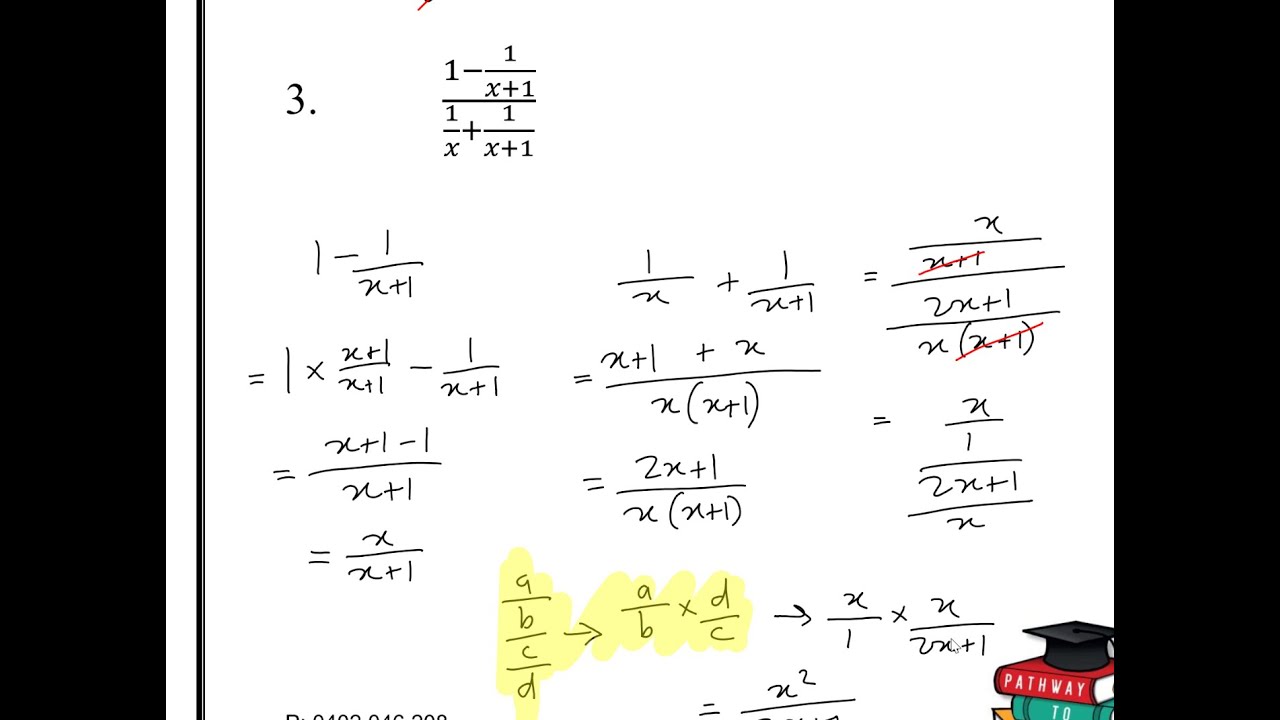 3. \frac{1-\frac{1}{x+1}}{\frac{1}{x}+\frac{1}{x+1}}
1 - \frac{1}{x+1}
= 1 × \frac{x+1}{x+1} - \frac{1}{x+1}
= \frac{x+1-1}{x+1}
= \frac{x}{x+1}
\frac{1}{x} + \frac{1}{x+1}
= \frac{x+1 + x}{x(x+1)}
= \frac{2x+1}{x(x+1)}
= \frac{\frac{x}{x+1}}{\frac{2x+1}{x(x+1)}}
= \frac{\frac{x}{1}}{\frac{2x+1}{x}}
\frac{\frac{a}{b}}{\frac{c}{d}} → \frac{a}{b} × \frac{d}{c} → \frac{x}{1} × \frac{x}{2x+1}
= x²
PATHWAY
TO